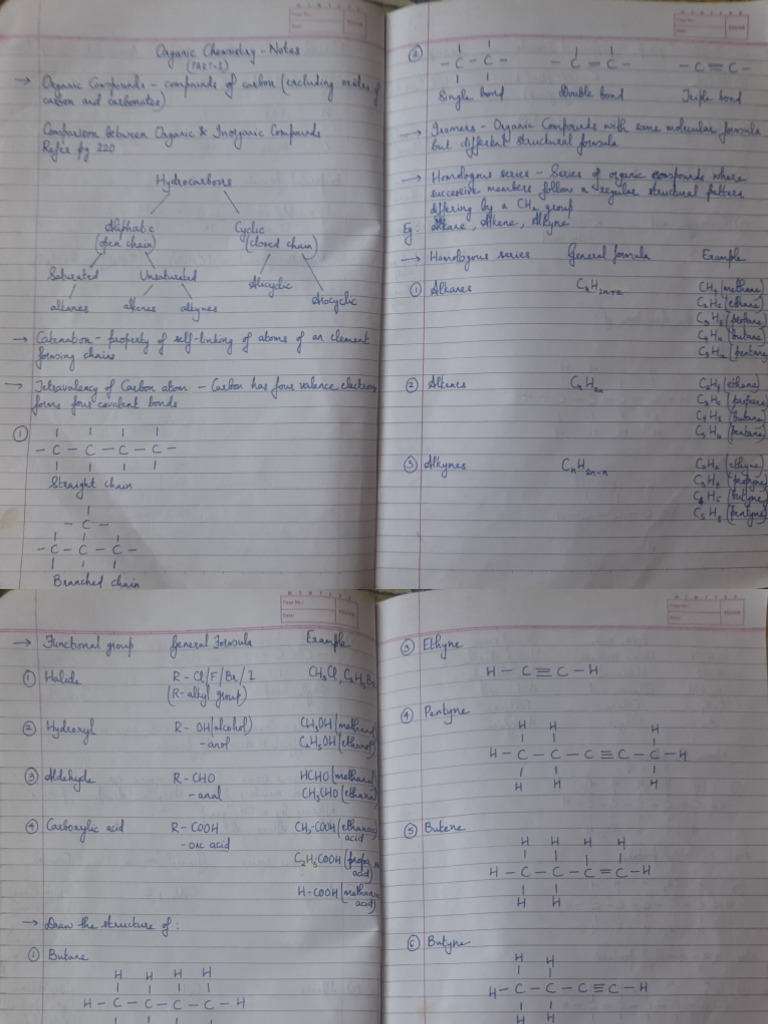 Organic Chemistry - Notes
(PART-1)
→ Organic Compounds - compounds of carbon (excluding oxides of
carbon and carbonates)
Comparison between Organic & Inorganic Compounds
Refer pg 220
Hydrocarbons
Aliphatic
(open chain)
Cyclic
(closed chain)
Saturated
Unsaturated
Alicyclic
Arocyclic
alkanes
alkenes
alkynes
→ Catenation - property of self-linking of atoms of an element
forming chains
→ Tetravalency of Carbon atom - Carbon has four valence electrons
forms four covalent bonds
①
- C - C - C - C -
Straight chain
- C -
- C - C - C -
Branched chain
②
- C - C -
- C = C -
- C ≡ C -
Single bond
Double bond
Triple bond
→ Isomers - Organic Compounds with same molecular formula
but different structural formula
→ Homologous series - Series of organic compounds where
successive members follow a regular structural pattern
differing by a CH₂ group
Eg: Alkane, Alkene, Alkyne
→ Homologous series General formula Example
① Alkanes CₙH₂ₙ₊₂ CH₄ (methane)
C₂H₆ (ethane)
C₃H₈
C₄H₁₀ (butane)
C₅H₁₂ (pentane)
② Alkenes CₙH₂ₙ C₂H₄
C₃H₆
C₄H₈
C₅H₁₀
③ Alkynes CₙH₂ₙ₋ C₂H₂ (ethyne)
C₃H₄ (propyne)
C₄H₆ (butyne)
C₅H₈ (pentyne)
→ Functional group General Formula Example
① Halide R - Cl/F/Br/I CH₃Cl, C₂H₅Br
(R-alkyl group)
② Hydroxyl R - OH (alcohol) CH₃OH
- anol C₂H₅OH (ethanol)
③ Aldehyde R - CHO HCHO
- anal CH₃CHO
④ Carboxylic acid R - COOH CH₃-COOH (ethanoic
- oic acid acid)
C₂H₅COOH
acid)
H-COOH (methanoic
acid)
→ Draw the structure of:
① Butane
H H H H
H - C - C - C - C - H
③ Ethyne
H - C ≡ C - H
④ Pentyne
H H H
H - C - C - C ≡ C - C - H
H H H
⑤ Butene
H H H H
H - C - C - C = C - H
H H
⑥ Butyne
H H
H - C - C - C ≡ C - H
H H